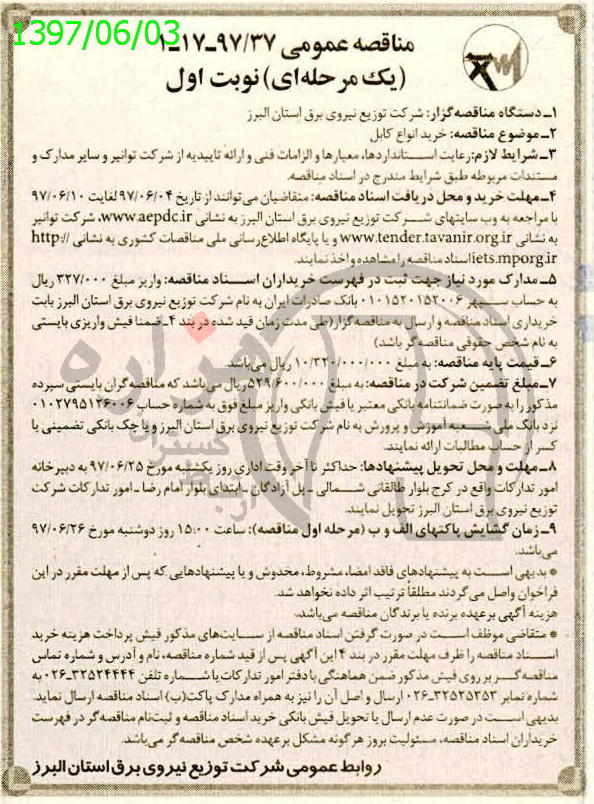 1397/06/03
مناقصه عمومی ۹۷/۳۷ـ۱۷ـ۱
(یک مرحله‌ای) نوبت اول
۱ـ دستگاه مناقصه‌گزار: شرکت توزیع نیروی برق استان البرز
۲ـ موضوع مناقصه: خرید انواع کابل
۳ـ شرایط لازم: رعایت استانداردها، معیارها و الزامات فنی و ارائه تاییدیه از شرکت توانیر و سایر مدارک و
مستندات مربوطه طبق شرایط مندرج در اسناد مناقصه.
۴ـ مهلت خرید و محل دریافت اسناد مناقصه: متقاضیان می‌توانند از تاریخ ۹۷/۰۶/۰۴ لغایت ۹۷/۰۶/۱۰
با مراجعه به وب سایتهای شرکت توزیع نیروی برق استان البرز به نشانی www.aepdc.ir، شرکت توانیر
به نشانی www.tender.tavanir.org.ir و یا پایگاه اطلاع‌رسانی ملی مناقصات کشوری به نشانی http://
iets.mporg.ir اسناد مناقصه را مشاهده و اخذ نمایند.
۵ـ مدارک مورد نیاز جهت ثبت در فهرست خریداران اسناد مناقصه: واریز مبلغ ۳۲۷/۰۰۰ ریال
به حساب سپهر ۰۱۰۱۵۲۰۱۵۲۰۰۶ بانک صادرات ایران به نام شرکت توزیع نیروی برق استان البرز بابت
خریداری اسناد مناقصه و ارسال به مناقصه‌گزار (طی مدت زمان قید شده در بند ۴ـ ضمنا فیش واریزی بایستی
به نام شخص حقوقی مناقصه‌گر باشد)
۶ـ قیمت پایه مناقصه: به مبلغ ۱۰/۳۲۰/۰۰۰/۰۰۰ ریال می‌باشد.
۷ـ مبلغ تضمین شرکت در مناقصه: به مبلغ ۵۲۹/۶۰۰/۰۰۰ ریال می‌باشد که مناقصه‌گران بایستی سپرده
مذکور را به صورت ضمانتنامه بانکی معتبر یا فیش بانکی واریز مبلغ فوق به شماره حساب ۰۱۰۲۷۹۵۱۳۶۰۰۶
نزد بانک ملی شعبه آموزش و پرورش به نام شرکت توزیع نیروی برق استان البرز و یا چک بانکی تضمینی یا
کسر از حساب مطالبات ارائه نمایند.
۸ـ مهلت و محل تحویل پیشنهادها: حداکثر تا آخر وقت اداری روز یکشنبه مورخ ۹۷/۰۶/۲۵ به دبیرخانه
امور تدارکات واقع در کرج بلوار طالقانی شمالی ـ پل آزادگان ـ ابتدای بلوار امام رضا ـ امور تدارکات شرکت
توزیع نیروی برق استان البرز تحویل نمایند.
۹ـ زمان گشایش پاکتهای الف و ب (مرحله اول مناقصه): ساعت ۱۵:۰۰ روز دوشنبه مورخ ۹۷/۰۶/۲۶
می‌باشد.
* بدیهی است به پیشنهادهای فاقد امضا، مشروط، مخدوش و یا پیشنهادهایی که پس از مهلت مقرر در این
فراخوان واصل می‌گردند مطلقاً ترتیب اثر داده نخواهد شد.
هزینه آگهی برعهده برنده یا برندگان مناقصه می‌باشد.
* متقاضی موظف است در صورت گرفتن اسناد مناقصه از سایت‌های مذکور فیش پرداخت هزینه خرید
اسناد مناقصه را ظرف مهلت مقرر در بند ۴ این آگهی پس از قید شماره مناقصه، نام و آدرس و شماره تماس
مناقصه‌گر بر روی فیش مذکور ضمن هماهنگی با دفتر امور تدارکات با شماره تلفن ۳۲۵۲۴۴۴۴-۰۲۶ به
شماره نمابر ۳۲۵۲۵۳۵۳-۰۲۶ ارسال و اصل آن را نیز به همراه مدارک پاکت (ب) اسناد مناقصه ارسال نماید.
بدیهی است در صورت عدم ارسال یا تحویل فیش بانکی خرید اسناد مناقصه و ثبت‌نام مناقصه‌گر در فهرست
خریداران اسناد مناقصه، مسئولیت بروز هرگونه مشکل برعهده شخص مناقصه‌گر می‌باشد.
روابط عمومی شرکت توزیع نیروی برق استان البرز